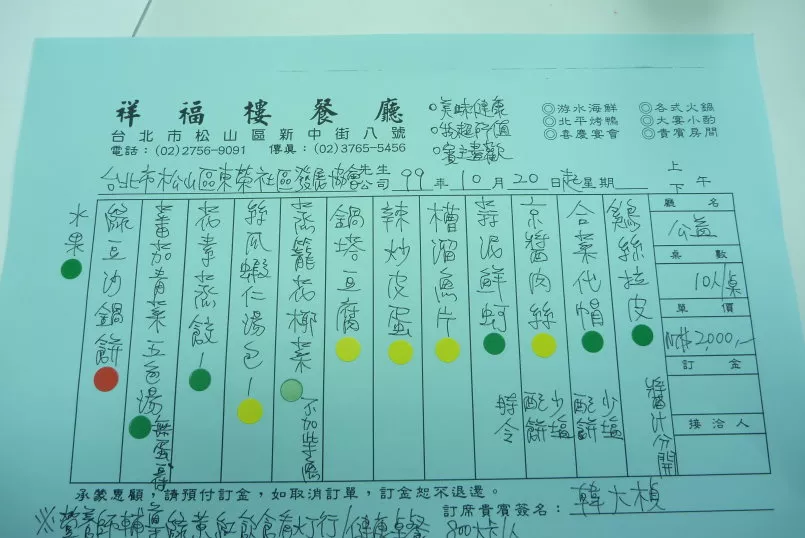 祥福樓餐廳
台北市松山區新中街八號
電話:(02)2756-9091 傳真:(02)3765-5456
美味健康
物超所值
賓主盡歡
◎游水海鮮 ◎各式火鍋
◎北平烤鴨 ◎大宴小酌
◎喜慶宴會 ◎貴賓房間
台北市松山區東榮社區發展協會 先生 公司 99年10月20日起星期 上 下 午
廳名
公益
桌數
10人/桌
單價
NT$2,000.-
訂金
接洽人
鷄絲拉皮 醬汁分開
合菜代帽 少塩 配餅
京醬肉絲 少塩 配餅
蒜泥鮮蚵 時令
糟溜魚片
辣炒皮蛋
鍋塔豆腐
蒸籠花椰菜 不加柴魚
絲瓜蝦仁湯包-
花素蒸餃-
蕃茄青菜五色湯 無蛋豆付
綠豆沙鍋餅
水果
承蒙惠顧,請預付訂金,如取消訂單,訂金恕不退還。
訂席貴賓簽名:韓大楨
※營養師輔導綠黃紅飲食有燈行/健康桌餐